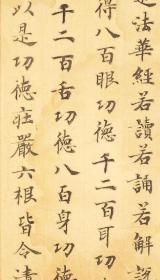 是法華經若讀若誦若解説
得八百眼功德千二百耳功德
千二百舌功德八百身功德
以是功德莊嚴六根皆令清